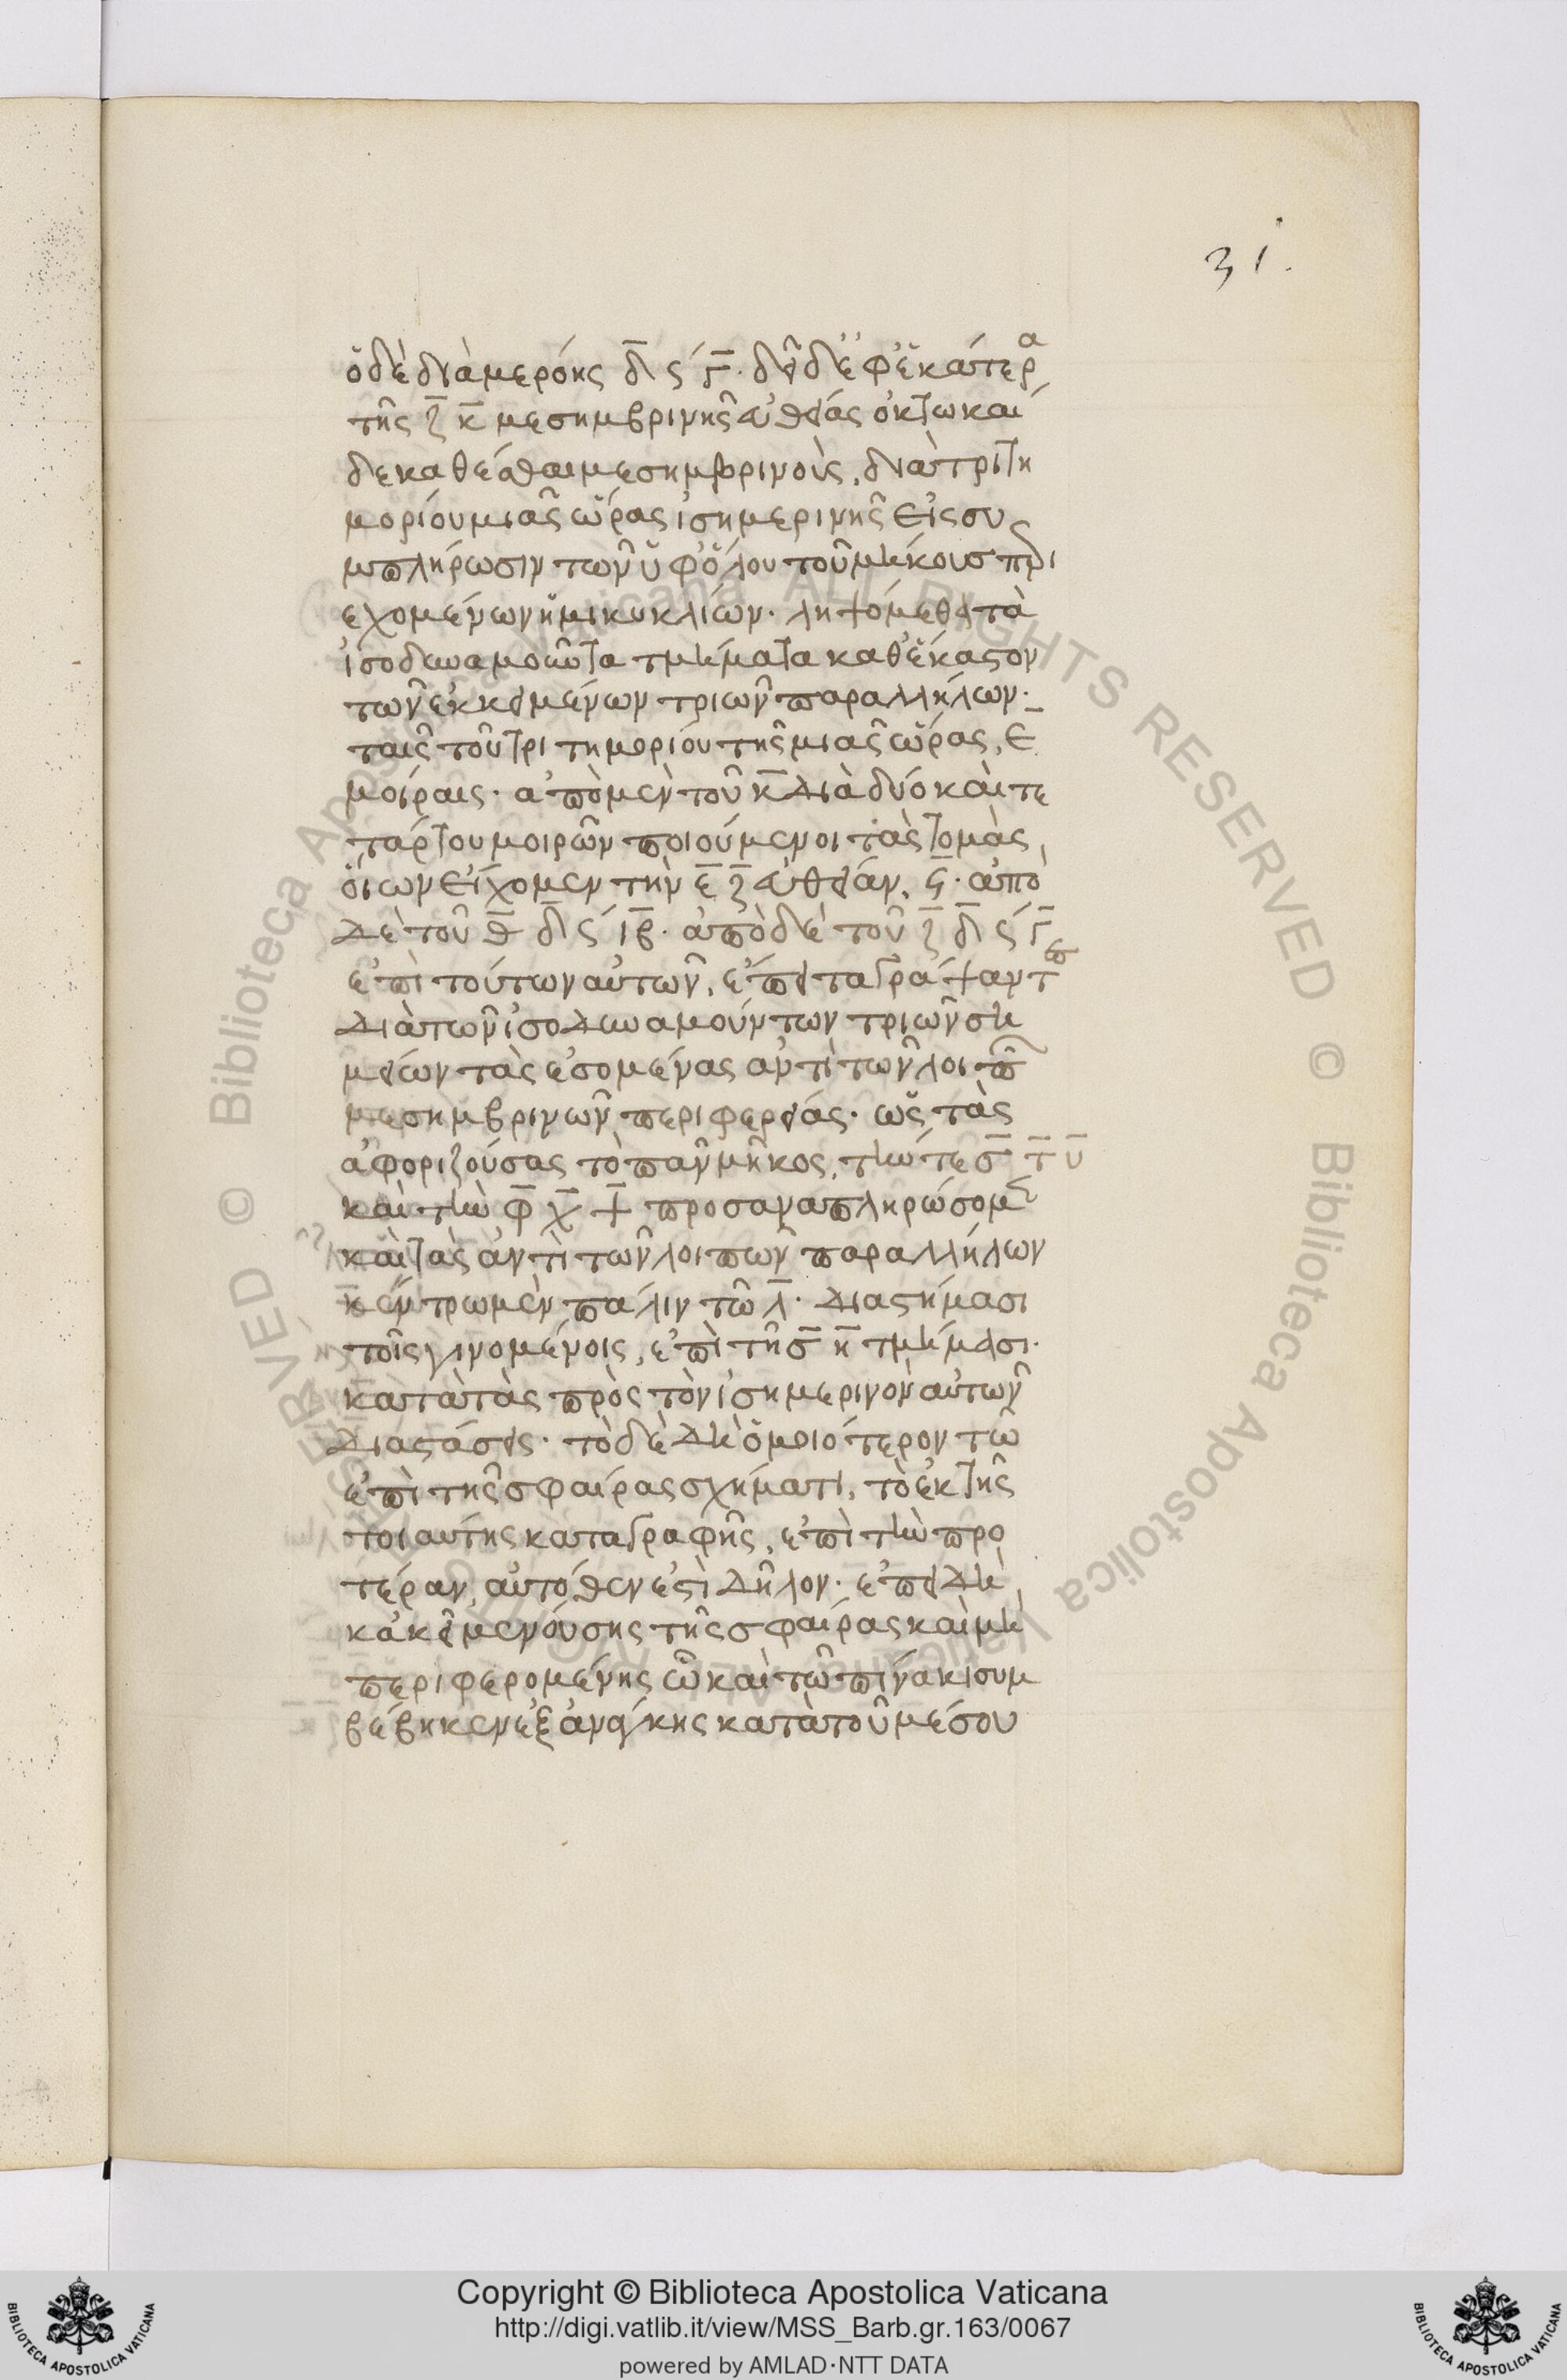 31.
ὁ δὲ διὰ μερόης δ̅ ϛ´ γ̅. δεῖ δὲ ἐφ ἑκάτερα
τῆς ζ̅ κ̅ μεσημβρινῆς εὐθείας ὀκτωκαί
δεκα θέσθαι μεσημβρινοὺς, διὰ τριτη
μορίου μιᾶς ὥρας ἰσημερινῆς εἰς συ
μπλήρωσιν τῶν ὑφ ὅλου τοῦ μήκους περι
εχομένων ἡμικυκλίων. ληψόμεθα τὰ
ἰσοδυναμοῦντα τμήματα καθ ἕκαστον
τῶν ἐκκειμένων τριῶν παραλλήλων.
ταῖς τοῦ τριτημορίου τῆς μιᾶς ὥρας, ε
μοίραις. ἀπὸ μὲν τοῦ κ̅ διὰ δύο καὶ τε
τάρτου μοιρῶν ποιούμενοι τὰς τομὰς,
οἵων εἴχομεν τὴν ε̅ ζ̅ εὐθείαν, ϛ̅. ἀπὸ
δὲ τοῦ θ̅ δ̅ ϛ´ ιβ̅. ἀπὸ δὲ τοῦ ζ̅ δ̅ ϛ´ γ̅
ἐπὶ τούτων αὐτῶν, ἔπειτα γράψαντες
διὰ τῶν ἰσοδυναμούντων τριῶν ση
μείων τὰς ἐσομένας ἀντὶ τῶν λοιπῶν
μεσημβρινῶν περιφερείας. ὡς τὰς
ἀφοριζούσας τὸ πᾶν μῆκος, τήν τε σ̅ τ̅ υ̅
καὶ τὴν φ̅ χ̅ ψ̅ προσαναπληρώσομεν
καὶ τὰς ἀντὶ τῶν λοιπῶν παραλλήλων
κέντρω μὲν πάλιν τῶ λ̅. διαστήμασι
τοῖς γινομένοις, ἐπὶ τῆς ̅ κ̅ τμήμασι.
κατὰ τὰς πρὸς τὸν ἰσημερινὸν αὐτῶν
διαστάσεις. τὸ δὲ δὴ ὁμοιότερον τῶ
ἐπὶ τῆς σφαίρας σχήματι, τὸ ἐκ τῆς
τοιαύτης καταγραφῆς, ἐπὶ τὴν προ
τέραν, αὐτόθεν ἐστὶ δῆλον. ἐπειδὴ
κἀκεῖ μενούσης τῆς σφαίρας καὶ μὴ
περιφερομένης ὧ καὶ τῶ πίνακι συμ
βέβηκεν ἐξ ἀνάγκης κατὰ τοῦ μέσου
© Biblioteca Apostolica Vaticana ALL RIGHTS RESERVED © Biblioteca Apostolica Vaticana ALL RIGHTS RESERVED
BIBLIOTECA APOSTOLICA VATICANA
Copyright © Biblioteca Apostolica Vaticana
http://digi.vatlib.it/view/MSS_Barb.gr.163/0067
powered by AMLAD·NTT DATA
BIBLIOTECA APOSTOLICA VATICANA